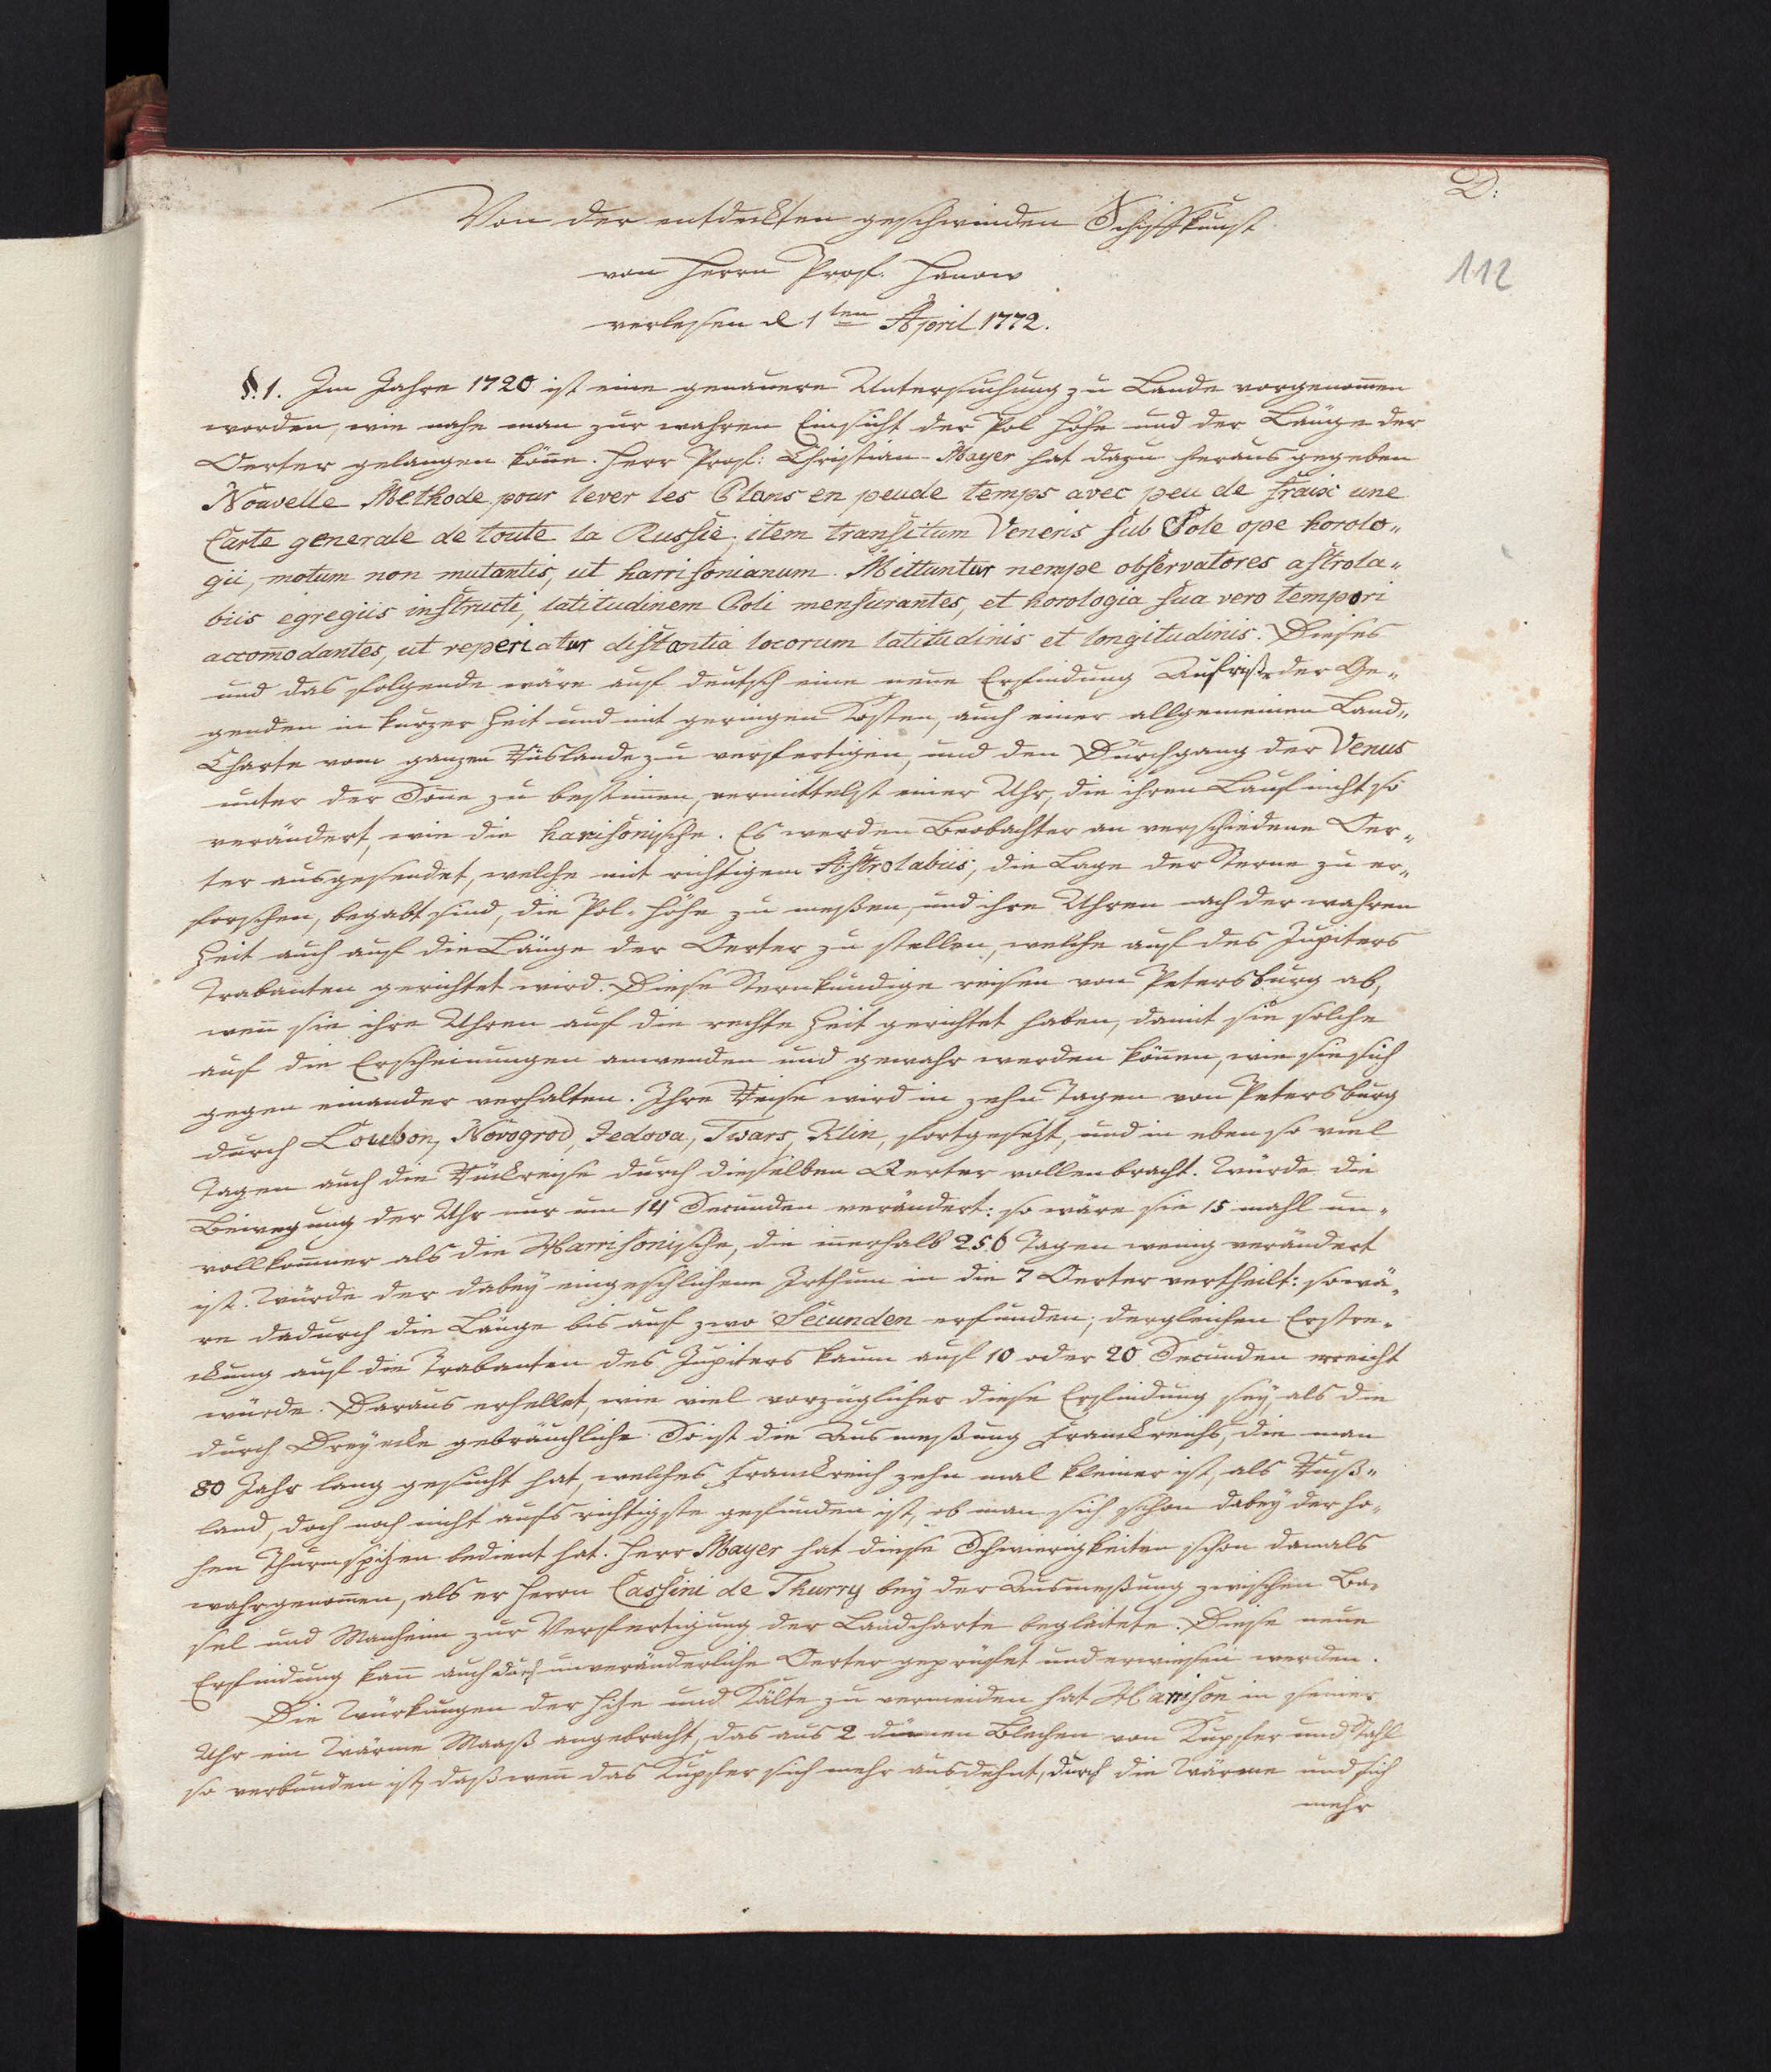 D:
112
Von der entdeckten geschwinden Schiffkunst
von Herrn Prof. Hanow
verlesen d 1ten April 1772.
§. 1. Im Jahre 1720 ist eine genauere Untersuchung zu Lande vorgenom̅en
worden, wie nahe man zur wahren Einsicht der Pol Höhe und der Länge der
Oerter gelangen kön̅e. Herr Prof: Christian Mayer hat dazu heraus gegeben
Nouvelle Methode pour lever les Plans en peude temps avec peu de fraix une
Carte generale de toute la Russie; item transitum Veneris sub Sole ope horolo„
gii, motum non mutantis, ut harrisonianum. Mittuntur nempe observatores astrola„
biis egregiis instructi, latitudinem Poli mensurantes, et horologia sua vero tempori
accom̅odantes, ut reperiatur distantia locorum latitudinis et longitudinis. Dieses
und das folgende wäre auf deutsch eine neue Erfindung Aufriße der Ge„
genden in kurzer Zeit und mit geringen Kosten, auch einer allgemeinen Land„
Charte vom ganzen Rüslande zu verfertigen, und den Durchgang der Venus
unter der Son̅e zu bestim̅en, vermittelst einer Uhr, die ihren Lauf nicht so
verändert, wie die harisonische. Es werden Beobachter an verschiedene Oer„
ter ausgesendet, welche mit richtigem Astrolabiis, die Lage der Sterne zu er„
forschen, begabt sind, die Pol-Höhe zu meßen, und ihre Uhren nach der wahren
Zeit auch auf die Länge der Oerter zu stellen, welche auf des Jupiters
Trabanten gerichtet wird. Diese Sternkundige reisen von Petersburg ab,
wen̅ sie ihre Uhren auf die rechte Zeit gerichtet haben, damit sie solche
auf die Erscheinungen anwenden und gewahr werden kön̅en, wie sie sich
gegen einander verhalten. Ihre Reise wird in zehn Tagen von Petersburg
durch Loubon, Novogrod, Jedova, Twars, Klin, fortgesezt, und in eben so viel
Tagen auch die Rückreise durch dieselben Oerter vollenbracht. Würde die
Bewegung der Uhr nur um 14 Secunden verändert: so wäre sie 15 mahl un„
vollkom̅ner als die Harrisonische, die innerhalb 256 Tagen wenig verändert
ist. Würde der dabey eingeschlichene Irthum in die 7 Oerter vertheilt: so wä„
re dadurch die Länge bis auf zwo Secunden erfunden; dergleichen Erstre„
ckung auf die Trabanten des Jupiters kaum auf 10 oder 20 Secunden erreicht
würde. Daraus erhellet, wie viel vorzüglicher diese Erfindung sey, als die
durch Dreyecke gebräuchliche. So ist die Ausmeßung Franckreichs, die man
80 Jahr lang gesucht hat, welches Franckreich zehn mal kleiner ist, als Ruß„
land, doch noch nicht aufs richtigste gefunden ist, ob man sich schon dabey der ho„
hen Thurmspizen bedient hat. Herr Mayer hat diese Schwierigkeiten schon damals
wahrgenom̅en, als er Herrn Cassini de Thurry bey der Ausmeßung zwischen Ba„
sel und Manheim zur Verfertigung der Landcharte begleitete. Diese neue
Erfindung kan̅ auch durch unveränderliche Oerter geprüfet und erwiesen werden.
Die Würkungen der Hize und Kälte zu vermeiden hat Harrison in seiner
Uhr ein Wärme Maaß angebracht, das aus 2 dünnen Blechen von Kupfer und Stahl
so verbunden ist, daß wen̅ das Kupfer sich mehr ausdehnt, durch die Wärme und sich
mehr